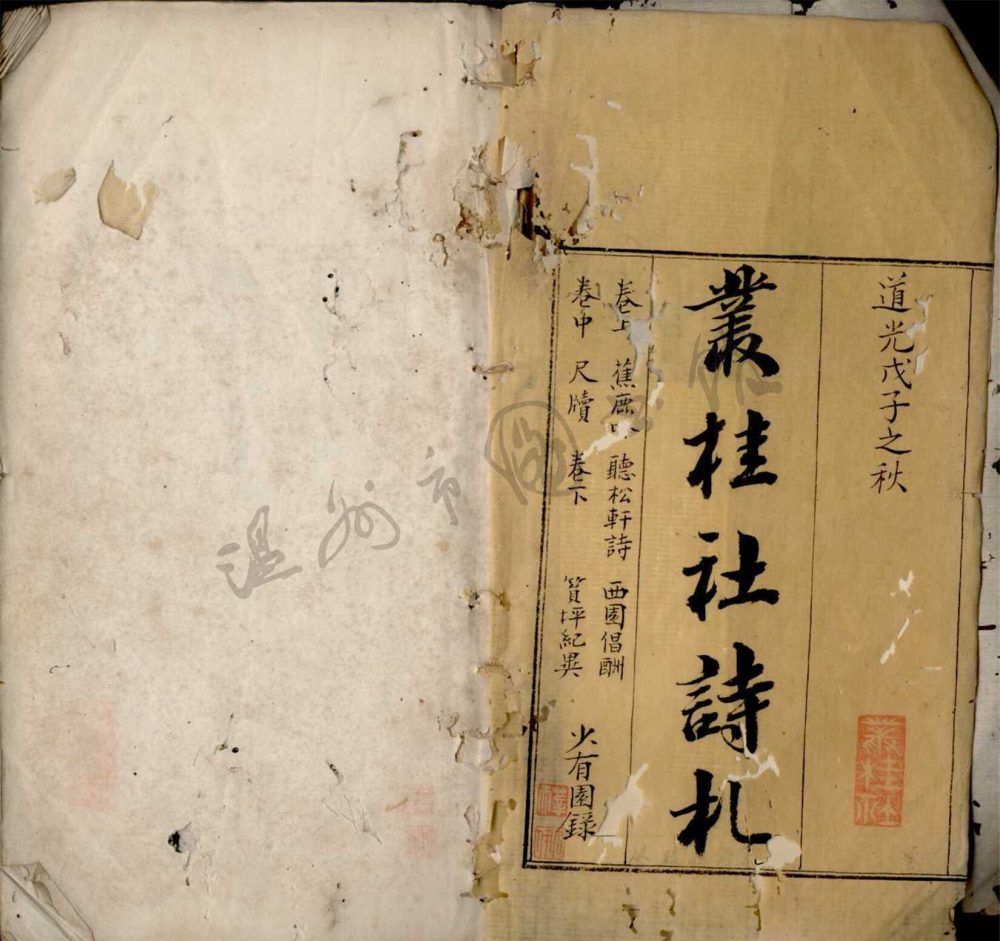 道光戊子之秋
叢桂社
叢桂社詩札
卷上 蕉鹿吟 聽松軒詩 西園倡酬
卷中 尺牘 卷下 質坪紀異
少有園錄
溫州市圖書館